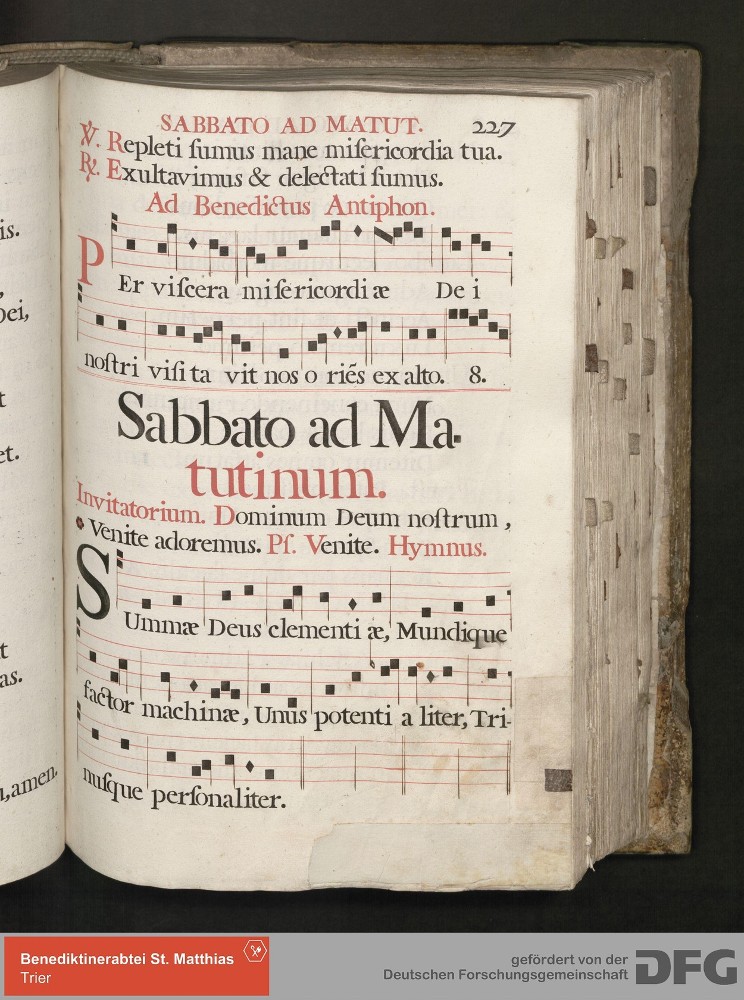 is.
,
bei,
t
et.
t
as.
ı, amen.
SABBATO AD MATUT. 227
℣. Repleti ſumus mane miſericordia tua.
℟. Exultavimus & delectati ſumus.
Ad Benedictus Antiphon.
PEr viſcera miſericordiæ Dei
noſtri viſita vit nos o riẽs ex alto. 8.
Sabbato ad Ma-
tutinum.
Invitatorium. Dominum Deum noſtrum,
* Venite adoremus. Pſ. Venite. Hymnus.
SUmmæ Deus clementi æ, Mundique
factor machinæ, Unus potenti a liter, Tri-
nuſque perſonaliter.
Benediktinerabtei St. Matthias
Trier
gefördert von der
Deutschen Forschungsgemeinschaft
DFG